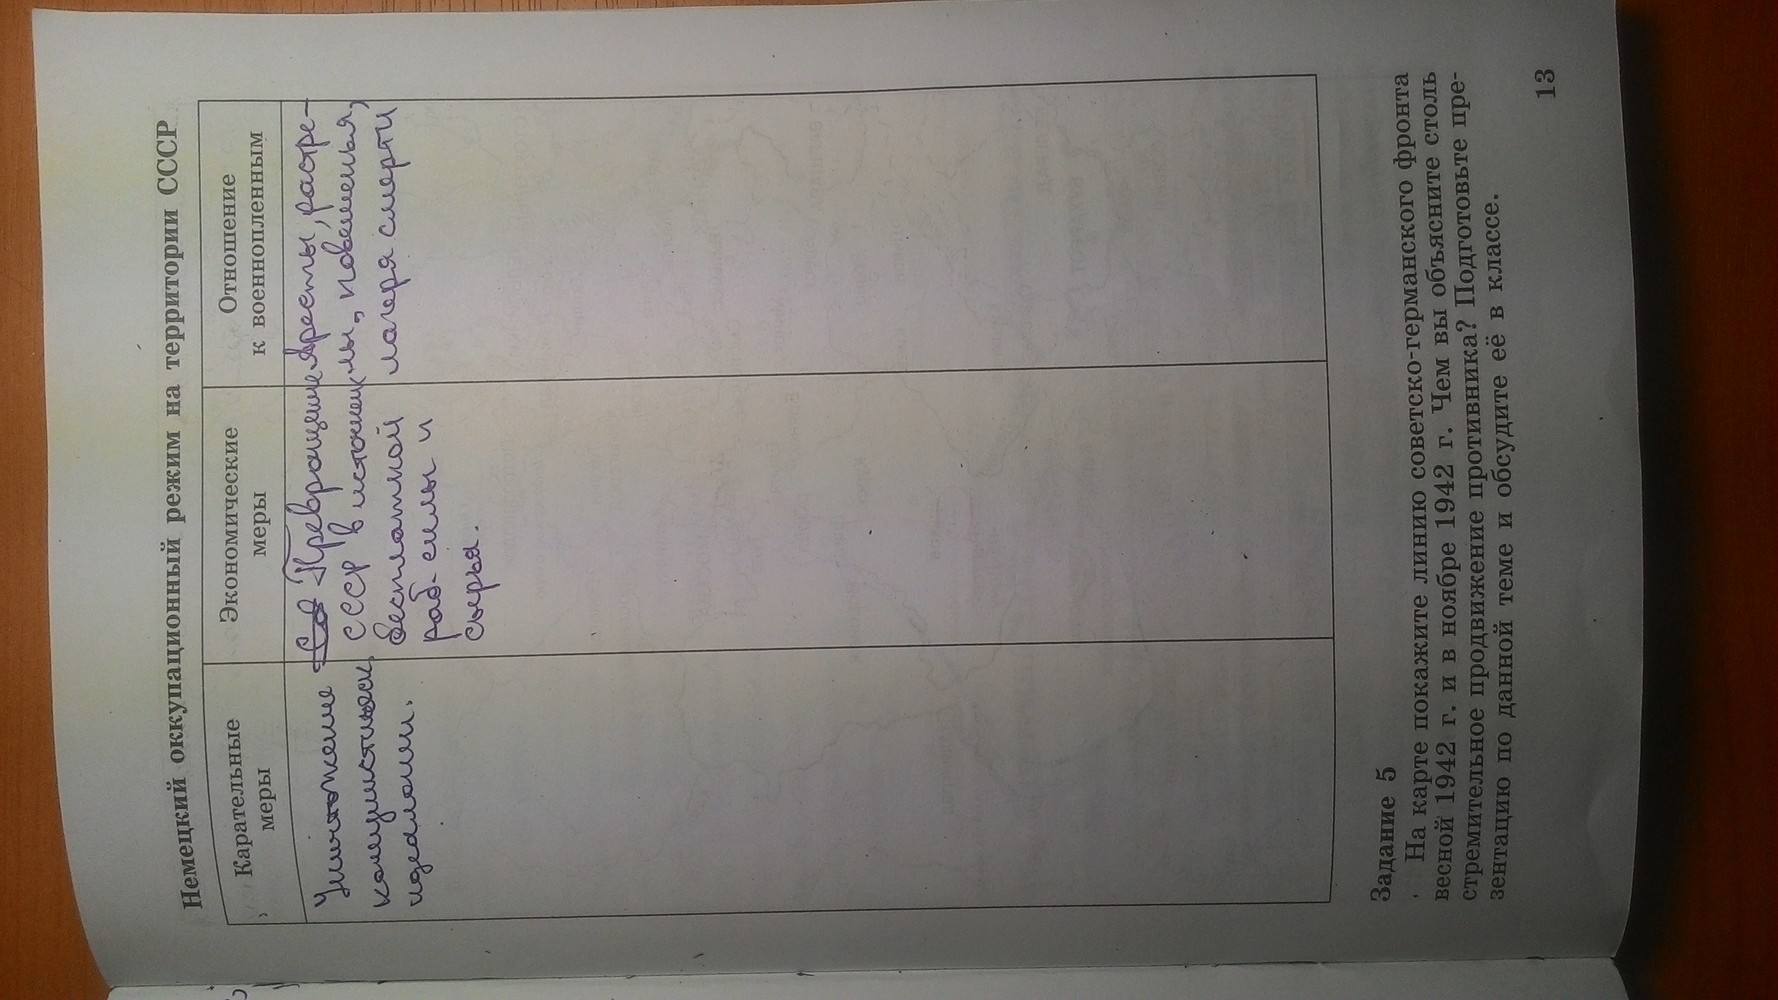 Немецкий оккупационный режим на территории СССР
Карательные
меры
Экономические
меры
Отношение
к военнопленным
Уничтожение
коммунистическ.
идеологии.
Превращение
СССР в источник
бесплатной
раб. силы и
сырья.
Аресты, расстре-
лы, повешенья,
лагеря смерти
Задание 5
На карте покажите линию советско-германского фронта
весной 1942 г. и в ноябре 1942 г. Чем вы объясните столь
стремительное продвижение противника? Подготовьте пре-
зентацию по данной теме и обсудите её в классе.
13